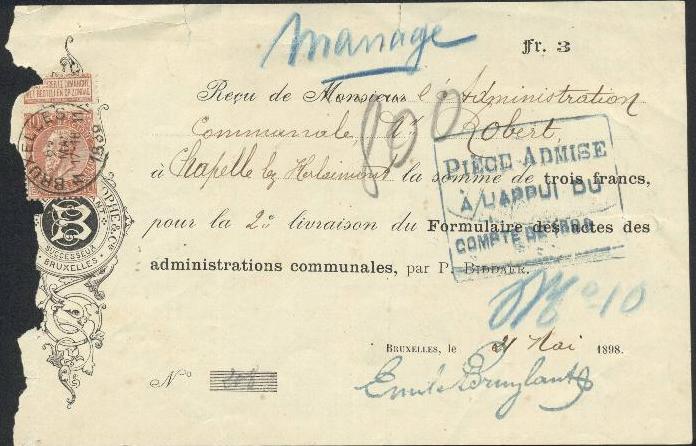 Manage
Fr. 3
Reçu de Monsieur l'Administration
Communale, Robert,
à Chapelle lez Herlaimont la somme de trois francs,
pour la 2e livraison du Formulaire des actes des
administrations communales, par P. BIDDAER.
890
PIÈCE ADMISE
A L'APPUI DU
COMPTE DE
No 10
BRUXELLES, le 21 Mai 1898.
Emile Bruylant
No
BRUXELLES
1898
OPHE & Cie
SUCCESSEUR
BRUXELLES